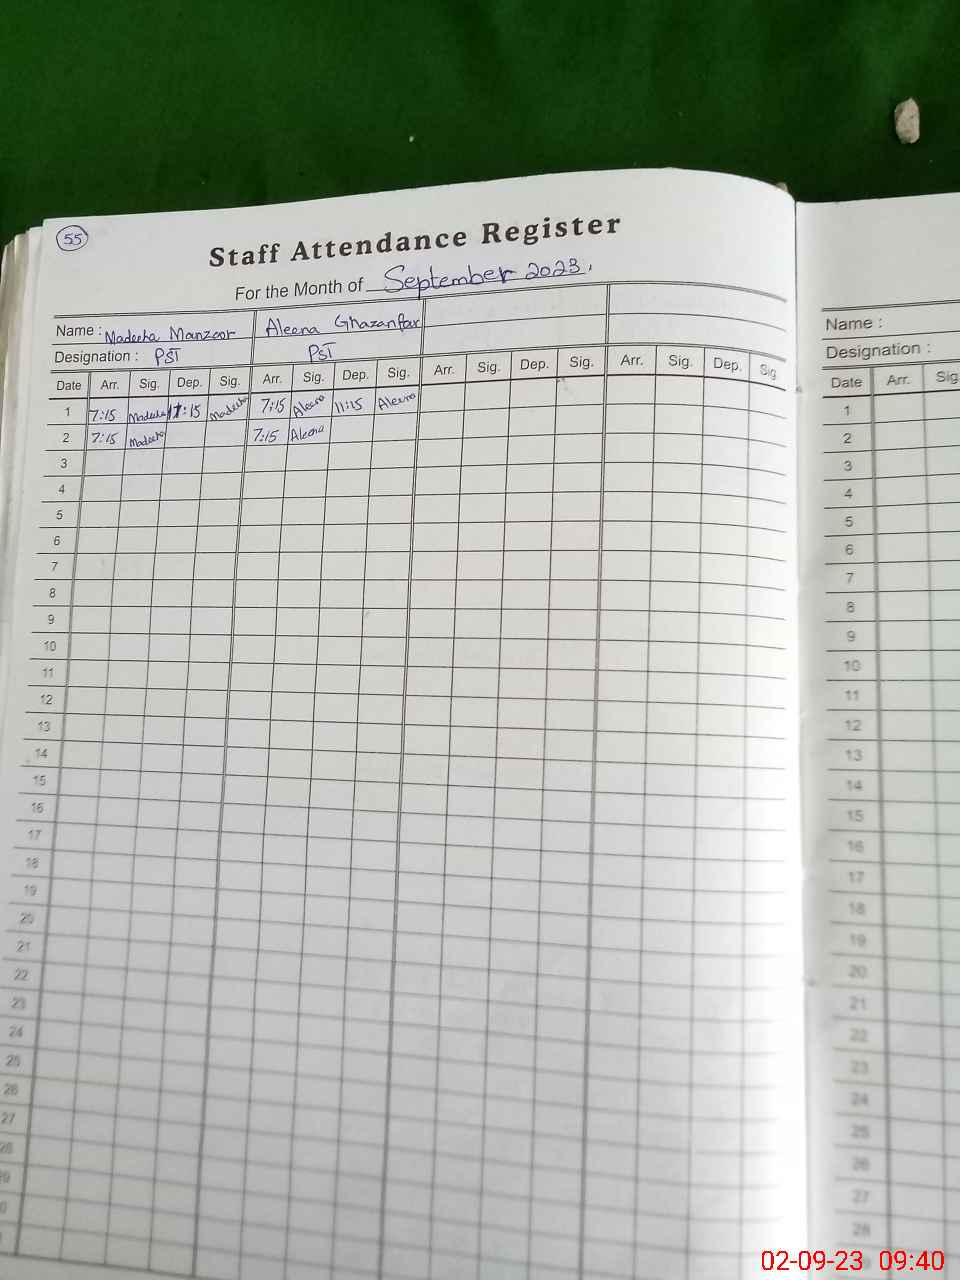 55
Staff Attendance Register
For the Month of September 2023.
Name : Madeeha Manzoor Aleena Ghazanfar
Designation : PST PST
Date Arr. Sig. Dep. Sig. Arr. Sig. Dep. Sig. Arr. Sig. Dep. Sig. Arr. Sig. Dep. Sig.
1 7:15 Madeeha 11:15 Madeeha 7:15 Aleena 11:15 Aleena
2 7:15 Madeeha 7:15 Aleena
3
4
5
6
7
8
9
10
11
12
13
14
15
16
17
18
19
20
21
22
23
24
25
26
27
28
Name :
Designation :
Date Arr. Sig
1
2
3
4
5
6
7
8
9
10
11
12
13
14
15
16
17
18
19
20
21
22
23
24
25
26
27
28
02-09-23 09:40